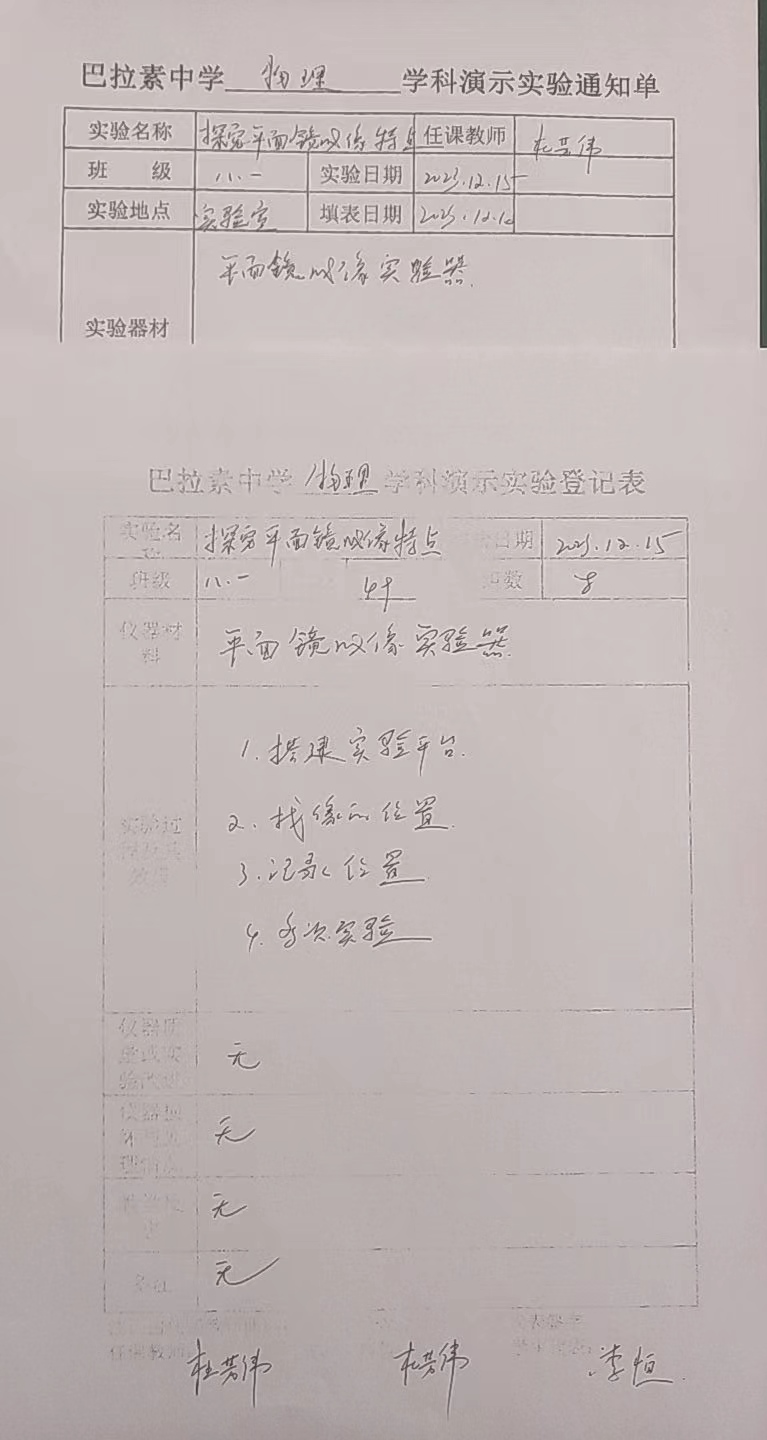 巴拉素中学 物理 学科演示实验通知单
实验名称 探究平面镜成像特点 任课教师 杜芸伟
班 级 八.一 实验日期 2023.12.15
实验地点 实验室 填表日期
平面镜成像实验器.
实验器材
巴拉素中学 物理 学科演示实验登记表
实验名 探究平面镜成像特点 日期 2023.12.15
班级 八.一 数
仪器材料 平面镜成像实验器.
1.搭建实验平台.
2.找像的位置.
3.记录位置.
4.多次实验
实验过
无
无
无
无
任课教师 杜芸伟 杜芸伟 李恒